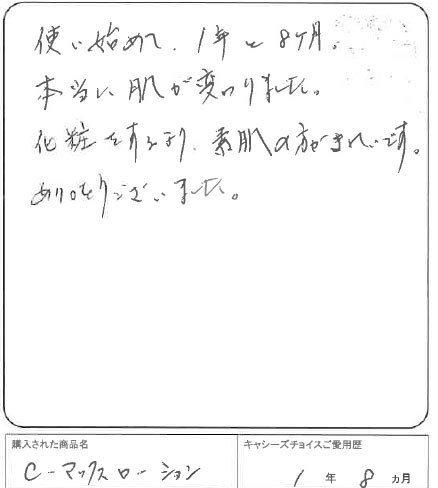 使い始めて、1年と8ケ月。
本当に肌が変わりました。
化粧をするより、素肌の方がきれいです。
ありがとうございました。
購入された商品名
C-マックスローション
キャシーズチョイスご愛用歴
1年 8ヵ月